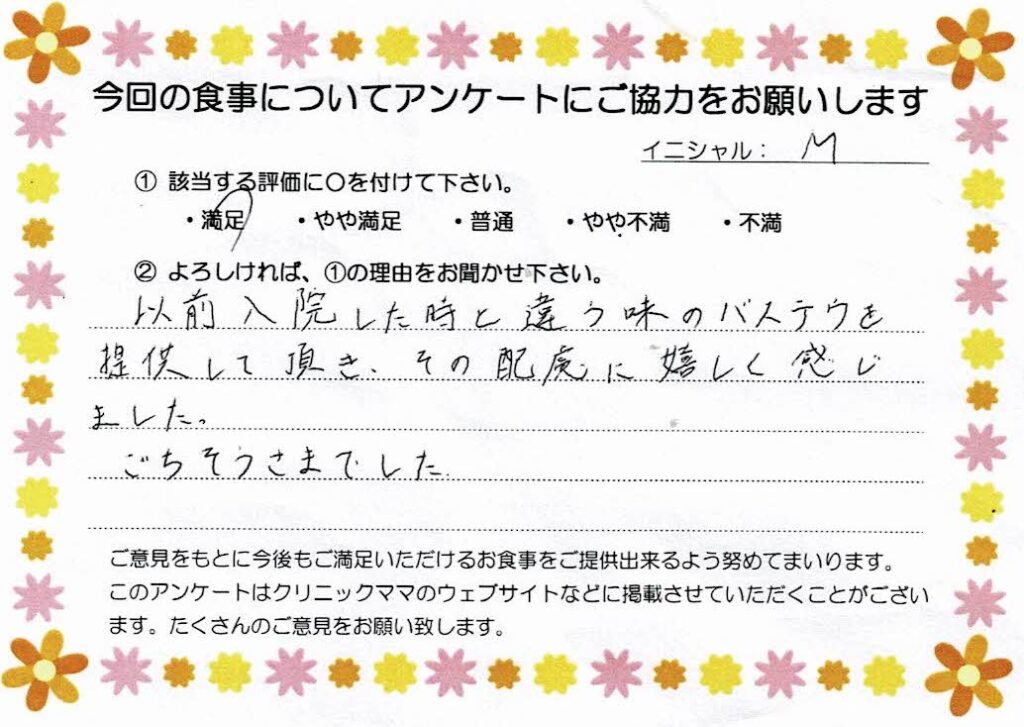 今回の食事についてアンケートにご協力をお願いします
イニシャル: M
① 該当する評価に○を付けて下さい。
・満足 ・やや満足 ・普通 ・やや不満 ・不満
② よろしければ、①の理由をお聞かせ下さい。
以前入院した時と違う味のバステウを
提供して頂き、その配慮に嬉しく感じ
ました。
ごちそうさまでした
ご意見をもとに今後もご満足いただけるお食事をご提供出来るよう努めてまいります。
このアンケートはクリニックママのウェブサイトなどに掲載させていただくことがござい
ます。たくさんのご意見をお願い致します。